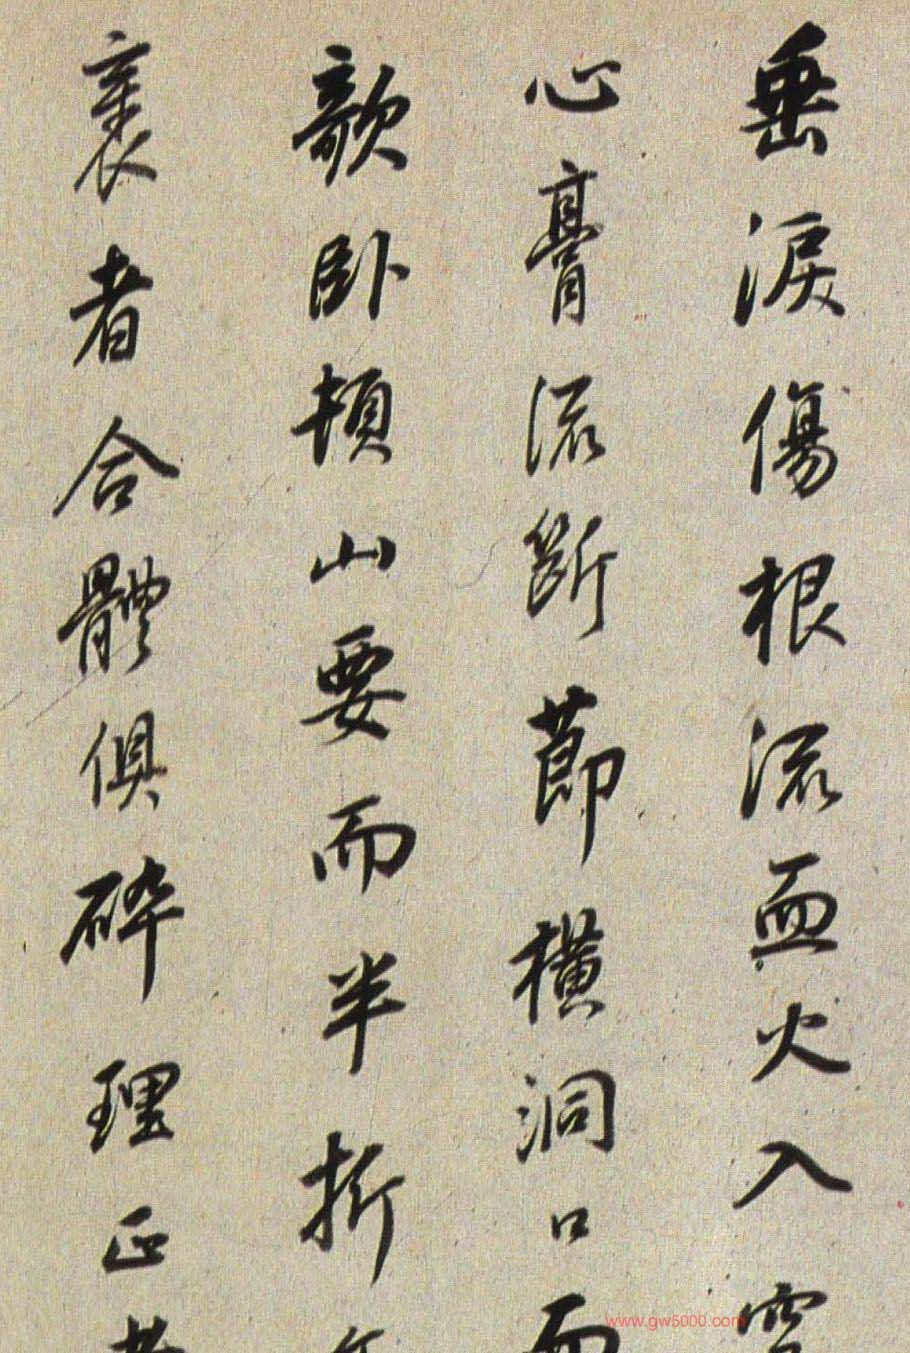 垂淚傷根流血火入空
心膏流斷節橫洞口而
歌臥頓山要而半折
裹者合體俱碎理正者
www.gw5000.com